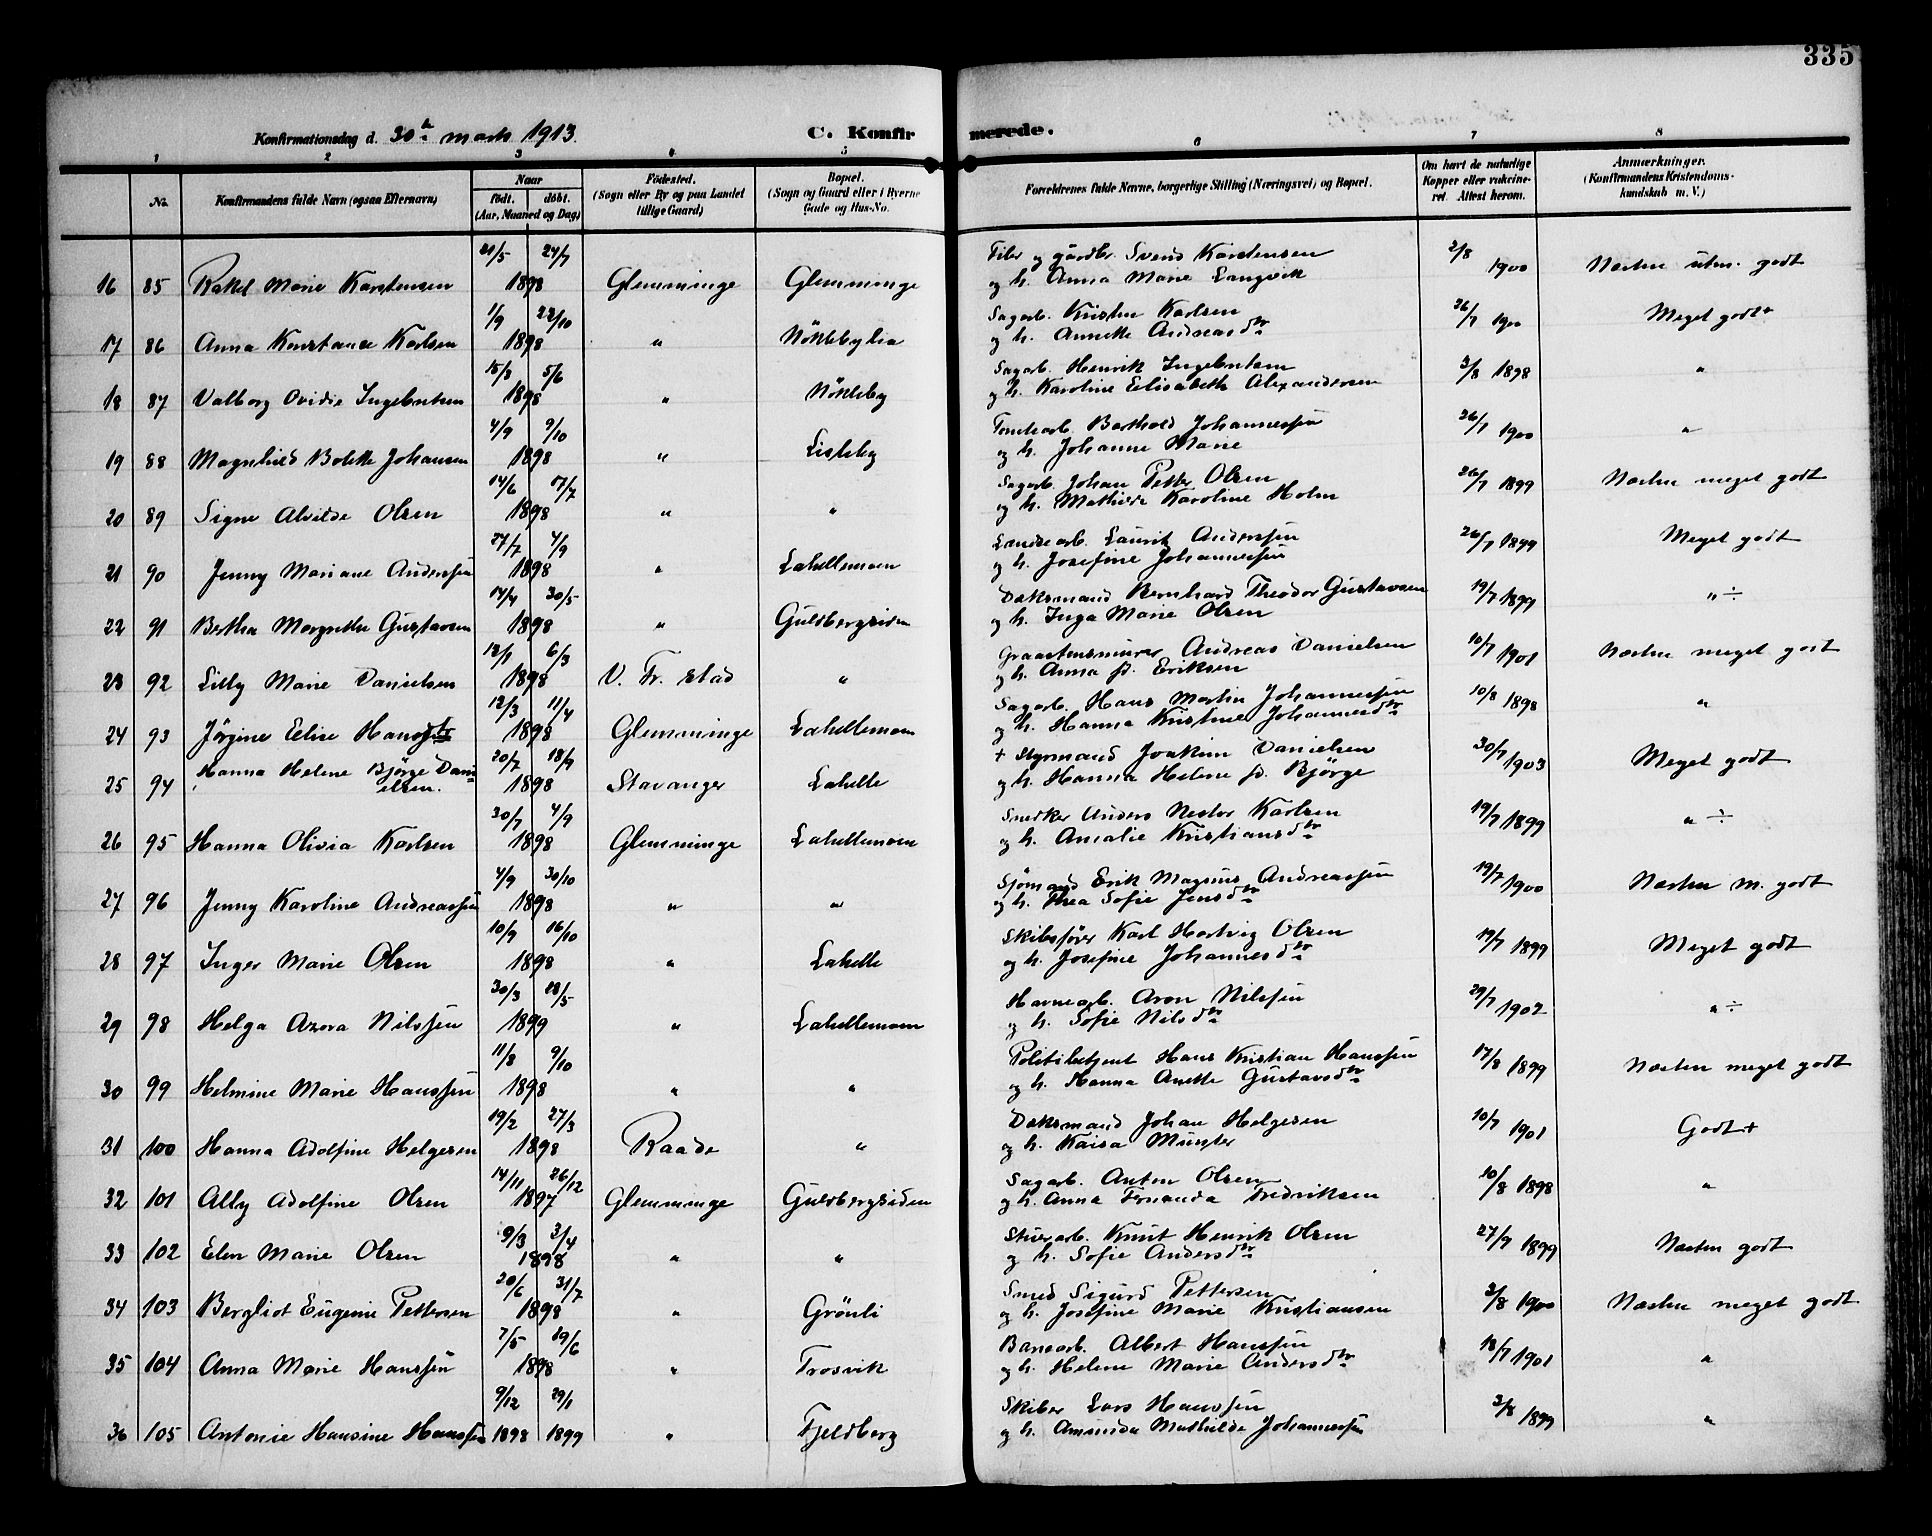 335
Konfirmationsdag d. 30te marts 1913.
C. Konfirmerede.
1 2 3 4 5 6 7 8
No. Konfirmandens fulde Navn (ogsaa Efternavn) Naar født. døbt. (Aar, Maaned og Dag) Fødested. (Sogn eller By og paa Landet tillige Gaard) Bopæl. (Sogn og Gaard eller i Byerne Gade og Hus-No. Forældrenes fulde Navne, borgerlige Stilling (Næringsvei) og Bopæl. Om havt de naturlige Kopper eller vakcineret. Attest herom. Anmærkninger. (Konfirmandens Kristendomskundskab m. V.)
16 85 Rakel Marie Karstensen 21/5 24/7 1898 Glemminge Glemminge og gårdbr. Svend Karstensen
og h. Anna Marie Langvik 2/8 1900 Næsten utm. godt
17 86 Anna Konstanse Karlsen 1/9 22/10 1898 " Nöklebylia Sagarb. Kristen Karlsen
og h. Annette Andreasdtr 26/7 1900 Meget godt+
18 87 Valborg Ovidie Ingebretsen 15/3 5/6 1898 " Nökleby Sagarb. Henrik Ingebretsen
og h. Karoline Elisabeth Alexandersen 3/8 1898 "
19 88 Magnhild Bolette Johansen 4/9 9/10 1898 " Lisleby Tomtearb. Barthold Johannessen
og h. Johanne Marie 26/7 1900 "
20 89 Signe Alvilde Olsen 14/6 17/7 1898 " " Sagarb. Johan Petter Olsen
og h. Mathilde Karoline Holm 26/7 1899 Næsten meget godt
21 90 Jenny Mariane Anderssen 27/7 4/9 1898 " Lahellemoen Landsearb. Laurits Anderssen
og h. Josefine Johannessen 26/7 1899 Meget godt
22 91 Bertha Margrethe Gustavsen 14/4 30/5 1898 " Guldbergsiden Doksmand Bernhard Theodor Gustavsen
og h. Inga Marie Olsen 19/7 1899 " ÷
23 92 Lilly Marie Danielsen 12/1 6/3 1898 V. Fr. stad " Graastensmurer Andreas Danielsen
og h. Anna f. Eriksen 10/7 1901 Næsten meget godt
24 93 Jörgine Elise 12/3 11/4 1898 Glemminge Lahellemoen Sagarb. Hans Martin Johannessen
og h. Hanna Kristine Johannesdtr 10/8 1898 "
25 94 Hanna Helene Björge Danielsen. 20/7 18/9 1898 Stavanger Lahelle + Styrmand Joakim Danielsen
og h. Hanna Helene f. Björge 30/7 1903 Meget godt
26 95 Hanna Olivia Karlsen 30/7 4/9 1898 Glemminge Lahellemoen Snedker Anders Nestor Karlsen
og h. Amalie Kristiansdtr 19/7 1899 " ÷
27 96 Jenny Karoline Andreassen 4/9 30/10 1898 " " Sjömand Erik Magnus Andreassen
og h. Thea Sofie Jensdtr 19/7 1900 Næsten m. godt
28 97 Inger Marie Olsen 10/9 16/10 1898 " Lahelle Skibsfører Karl Hartvig Olsen
og h. Josefine Johannesdtr 19/7 1899 Meget godt
29 98 Helga Azora Nilssen 30/3 18/5 1899 " Lahellemoen Havnearb. Aron Nilssen
og h. Sofie Nilsdtr 29/7 1902 " ÷
30 99 Helmine Marie Hanssen 11/8 9/10 1898 " " Politibetjent Hans Kristian Hanssen
og h. Hanna Anette Gustavsdtr 17/8 1899 Næsten meget godt
31 100 Hanna Adolfine Helgesen 19/2 27/3 1898 Raade " Doksmand Johan Helgesen
og h. Kaisa Münster 10/7 1901 Godt+
32 101 Ally Adolfine Olsen 14/11 26/12 1897 Glemminge Guldbergsiden Sagarb. Anton Olsen
og h. Anna Fernanda Fredriksen 10/8 1898 "
33 102 Elen Marie Olsen 9/3 3/4 1898 " " Stuerarb. Knut Henrik Olsen
og h. Sofie Andersdtr 27/7 1899 Næsten godt
34 103 Bergliot Eugenie Pettersen 20/6 31/7 1898 " Grönli Smed Sigurd Pettersen
og h. Josefine Marie Kristiansen 3/8 1900 Næsten meget godt
35 104 Anna Marie Hanssen 7/5 19/6 1898 " Trosvik Banearb. Albert Hanssen
og h. Helene Marie Andersdtr 18/7 1901 "
36 105 Antonie Hansine Hanssen 9/12 1898 29/1 1899 " Fjeldberg Skiber Lars Hanssen
og h. Aminda Mathilde Johannessen 3/8 1899 "